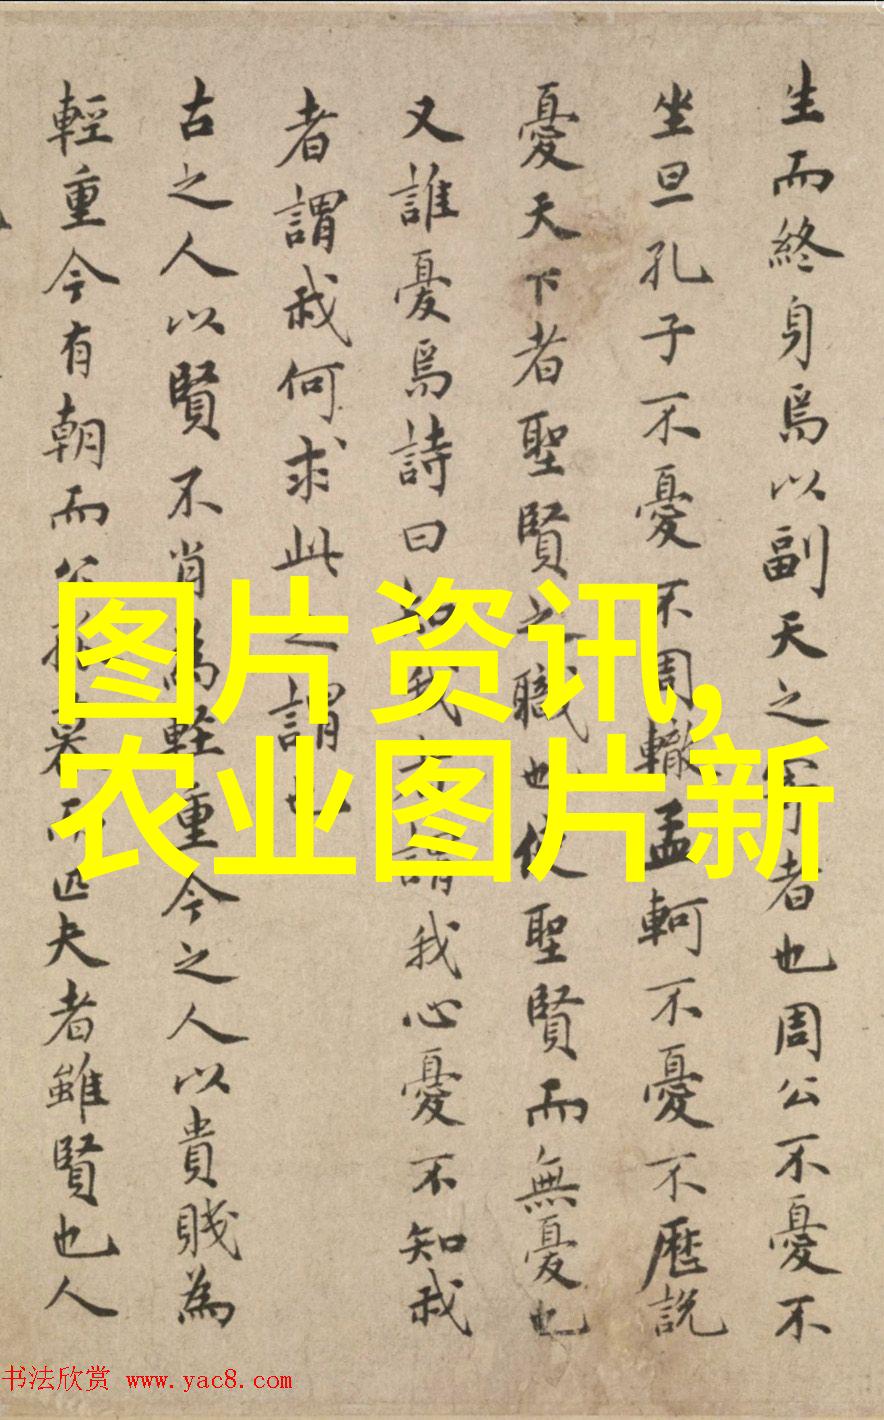 生而終身焉以副天之寄者也周公不憂不
坐旦孔子不憂不周轍孟軻不憂不歷說
憂天下者聖賢之職也使聖賢而無憂也
又誰憂焉詩曰知我者謂我心憂不知我
者謂我何求此之謂也
古之人以賢不肖為輕重今之人以貴賤為
輕重今有朝而公孤暮而匹夫者雖賢也人
图片资讯,
农业图片新
书法欣赏 www.yac8.com